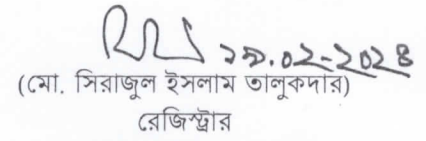 ২৯.০২-২০২৪
(মো. সিরাজুল ইসলাম তালুকদার)
রেজিস্ট্রার